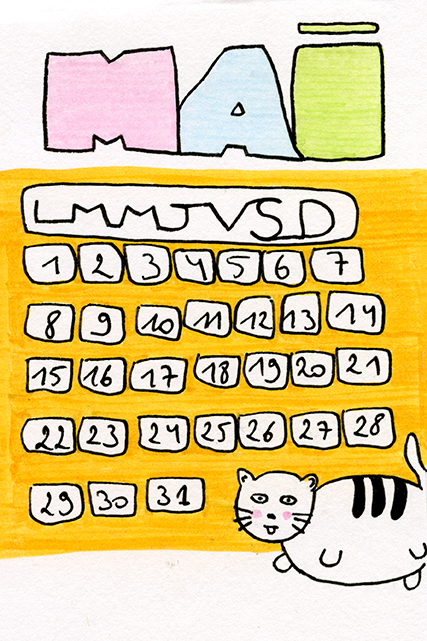 MAI
LMMJVSD
1 2 3 4 5 6 7
8 9 10 11 12 13 14
15 16 17 18 19 20 21
22 23 24 25 26 27 28
29 30 31